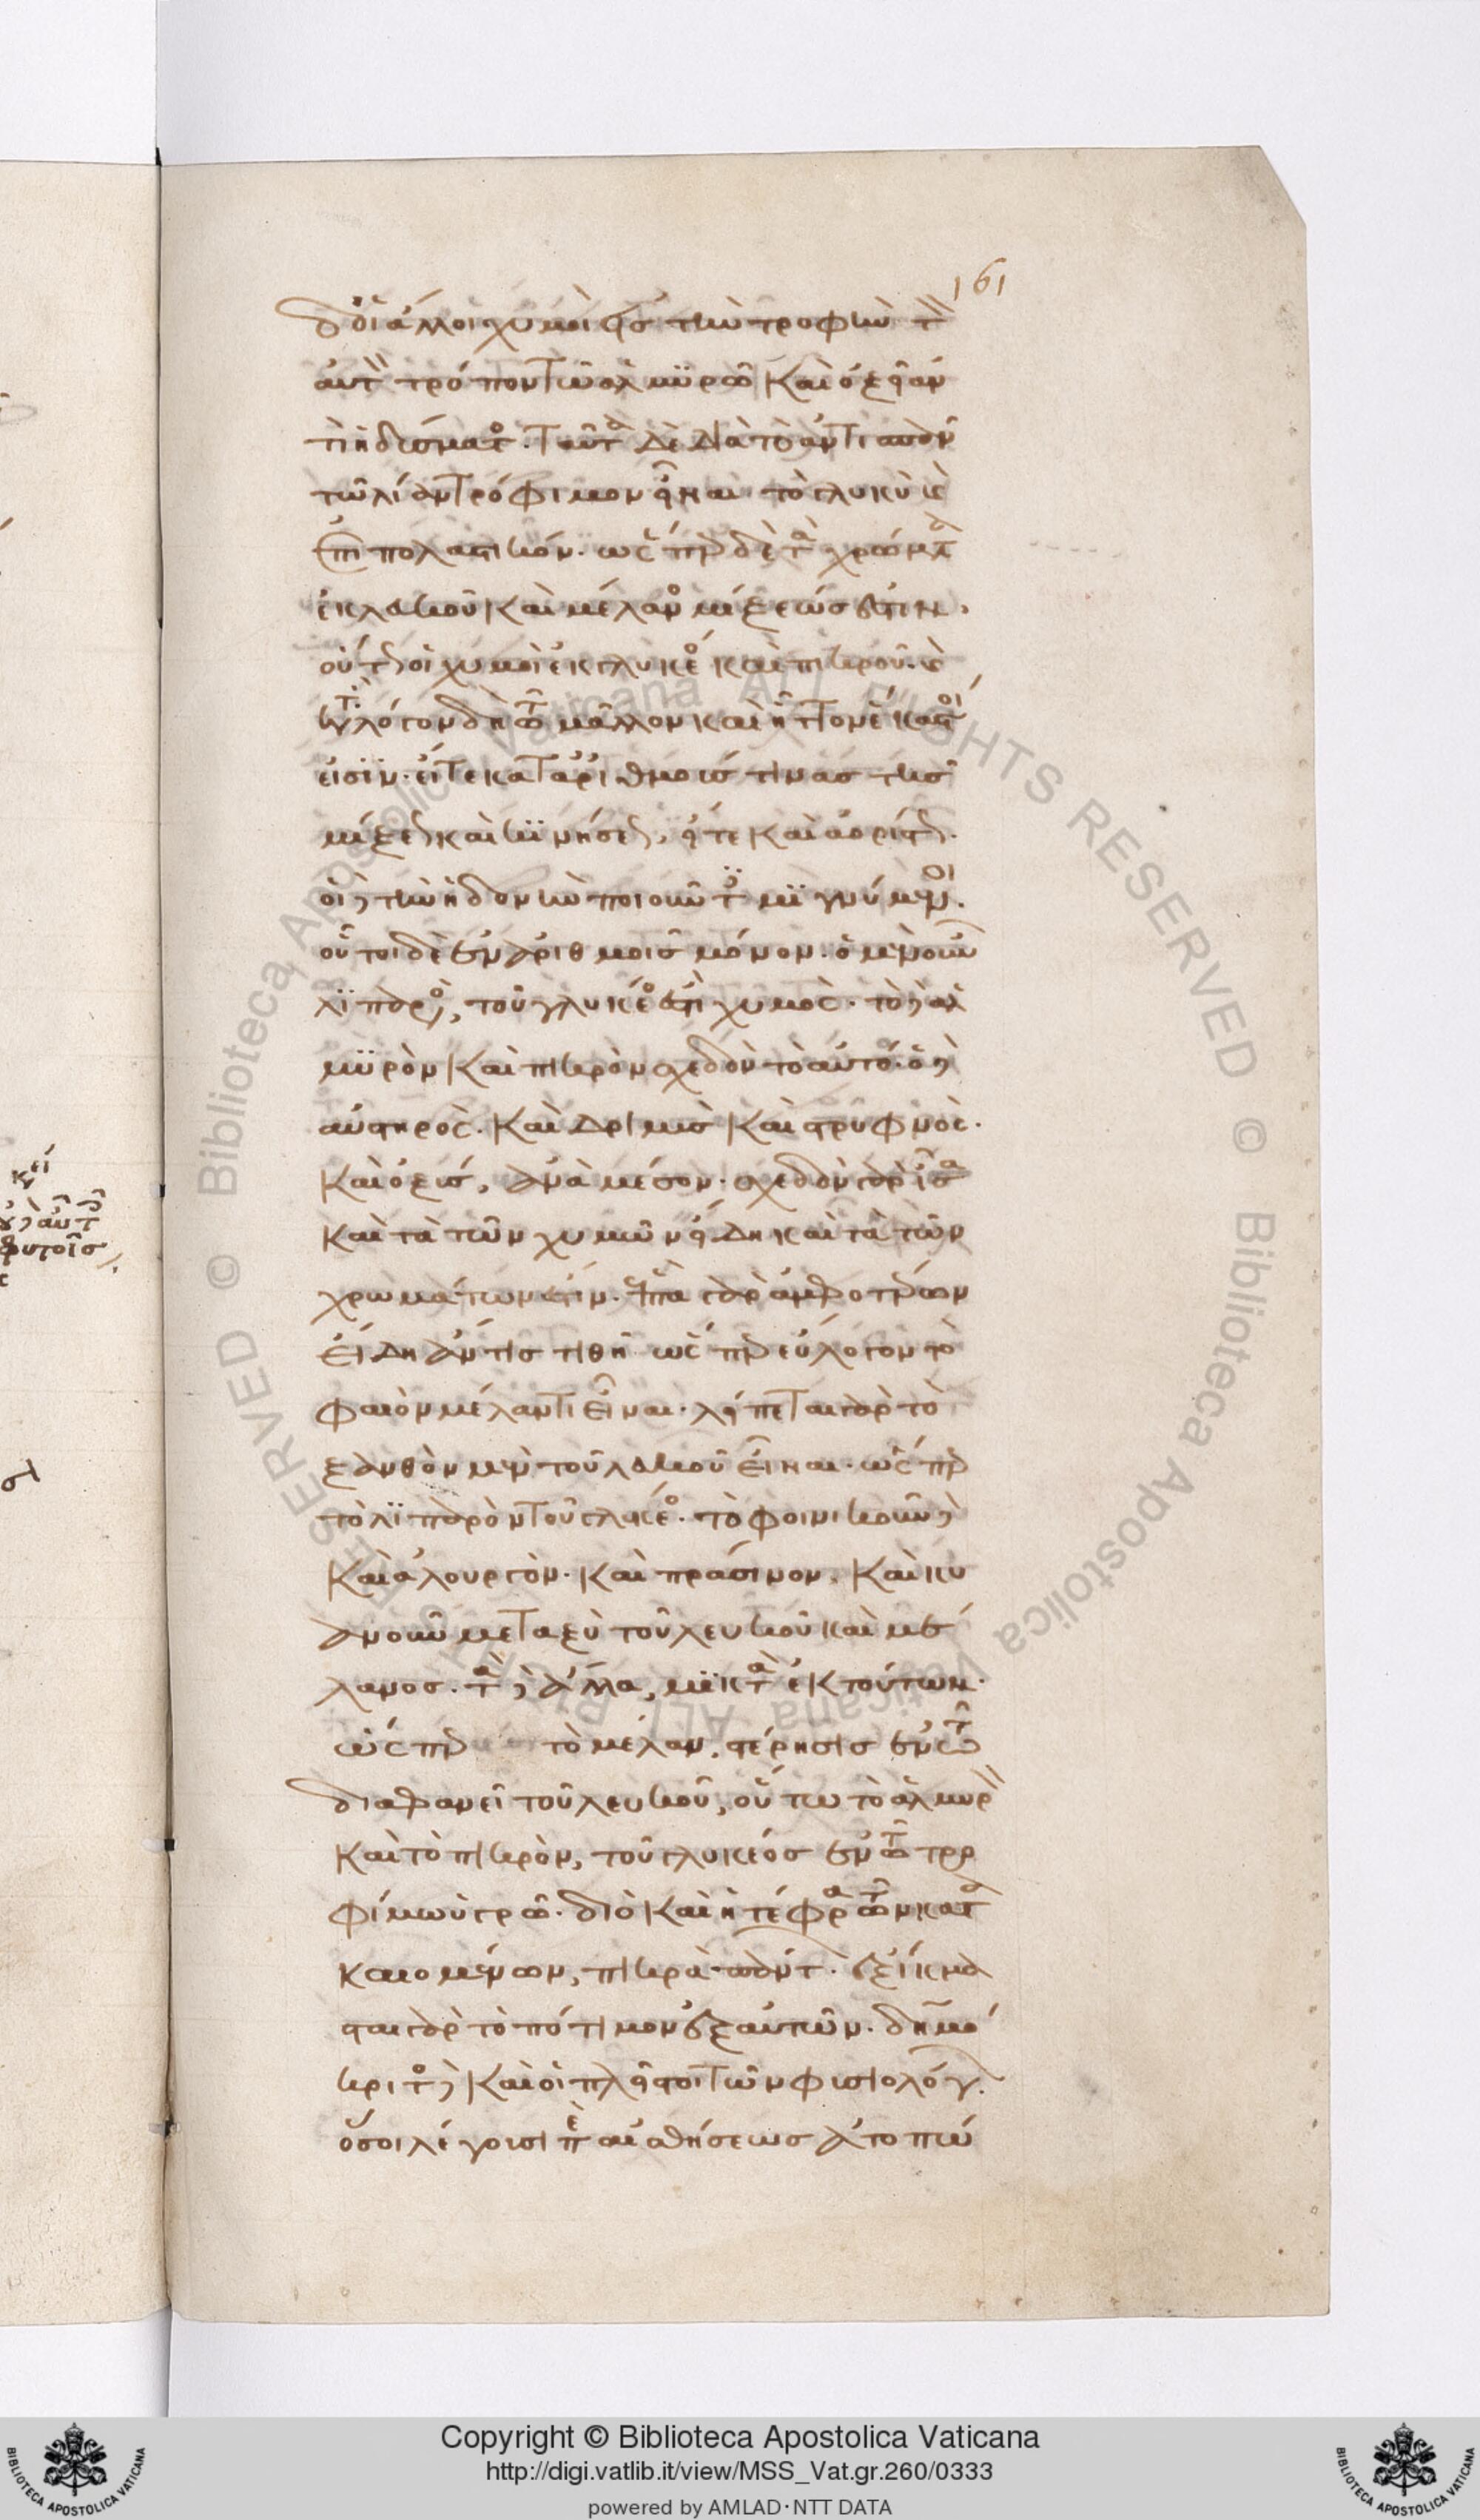 161
δ οἱ ἄλλοι χυμοὶ εἰς τὴν τροφὴν τὸν
αὐτὸν τρόπον τῶ ἁλμυρῶ καὶ ὀξεῖ ἀν
τὶ ἡδύσματος. ταῦτα δὲ διὰ τὸ ἀντισπᾶν
τῶ λίαν τρόφιμον εἶναι τὸ γλυκὺ καὶ
ἐπιπολαστικόν. ὥσπερ δὲ τὰ χρώματα
ἐκ λευκοῦ καὶ μέλανος μίξεώς ἐστιν.
οὕτως οἱ χυμοὶ ἐκ γλυκέος καὶ πικροῦ. καὶ
κατὰ λόγον δὴ τῶ μᾶλλον καὶ ἧττον ἕκαστοί
εἰσιν. εἴτε κατ' ἀριθμούς τινας τῆς
μίξεως καὶ κινήσεως, εἴτε καὶ ἀορίστως.
οἱ δὲ τὴν ἡδονὴν ποιοῦντες μιγνύμενοι.
οὗτοι δὲ ἐν ἀριθμοῖς μόνον. ὁ μὲν οὖν
λιπαρὸς, τοῦ γλυκέος ἐστὶ χυμός. τὸ δὲ ἁλ
μυρὸν καὶ πικρὸν σχεδὸν τὸ αὐτό. ὁ δὲ
αὐστηρὸς. καὶ δριμὺς καὶ στρυφνὸς.
καὶ ὀξὺς, ἀνὰ μέσον. σχεδὸν γὰρ ἴσα
καὶ τὰ τῶν χυμῶν εἴδη καὶ τὰ τῶν
χρωμάτων ἐστίν. ἑπτὰ γὰρ ἀμφοτέρων
εἴδη ἄν τις τιθῆ ὥσπερ εὔλογον τὸ
φαιὸν μέλαν τι εἶναι. λείπεται γὰρ τὸ
ξανθὸν μὲν τοῦ λευκοῦ εἶναι. ὥσπερ
τὸ λιπαρὸν τοῦ γλυκέος. τὸ φοινικοῦν δὲ
καὶ ἁλουργὸν. καὶ πράσινον. καὶ κυ
ανοῦν μεταξὺ τοῦ λευκοῦ καὶ μέ
λανος. τὰ δὲ ἄλλα, μικτὰ ἐκ τούτων.
ὥσπερ τὸ μέλαν. στέρησις ἐν τῶ
διαφανεῖ τοῦ λευκοῦ, οὕτω τὸ ἁλμυρὸν
καὶ τὸ πικρὸν, τοῦ γλυκέος ἐν τῶ τρο
φίμω ὑγρῶ. διὸ καὶ ἡ τέφρα τῶν κατα
καιομένων, πικρὰ πάντων. ἐξίκμα
σται γὰρ τὸ πότιμον ἐξ αὐτῶν. δημό
κριτος δὲ καὶ οἱ πλεῖστοι τῶν φυσιολόγων.
ὅσοι λέγουσι περὶ αἰσθήσεως ἄτοπώ
Copyright © Biblioteca Apostolica Vaticana
http://digi.vatlib.it/view/MSS_Vat.gr.260/0333
powered by AMLAD·NTT DATA